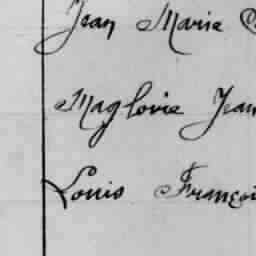 Jean Marie
Magloire Jean
Louis François